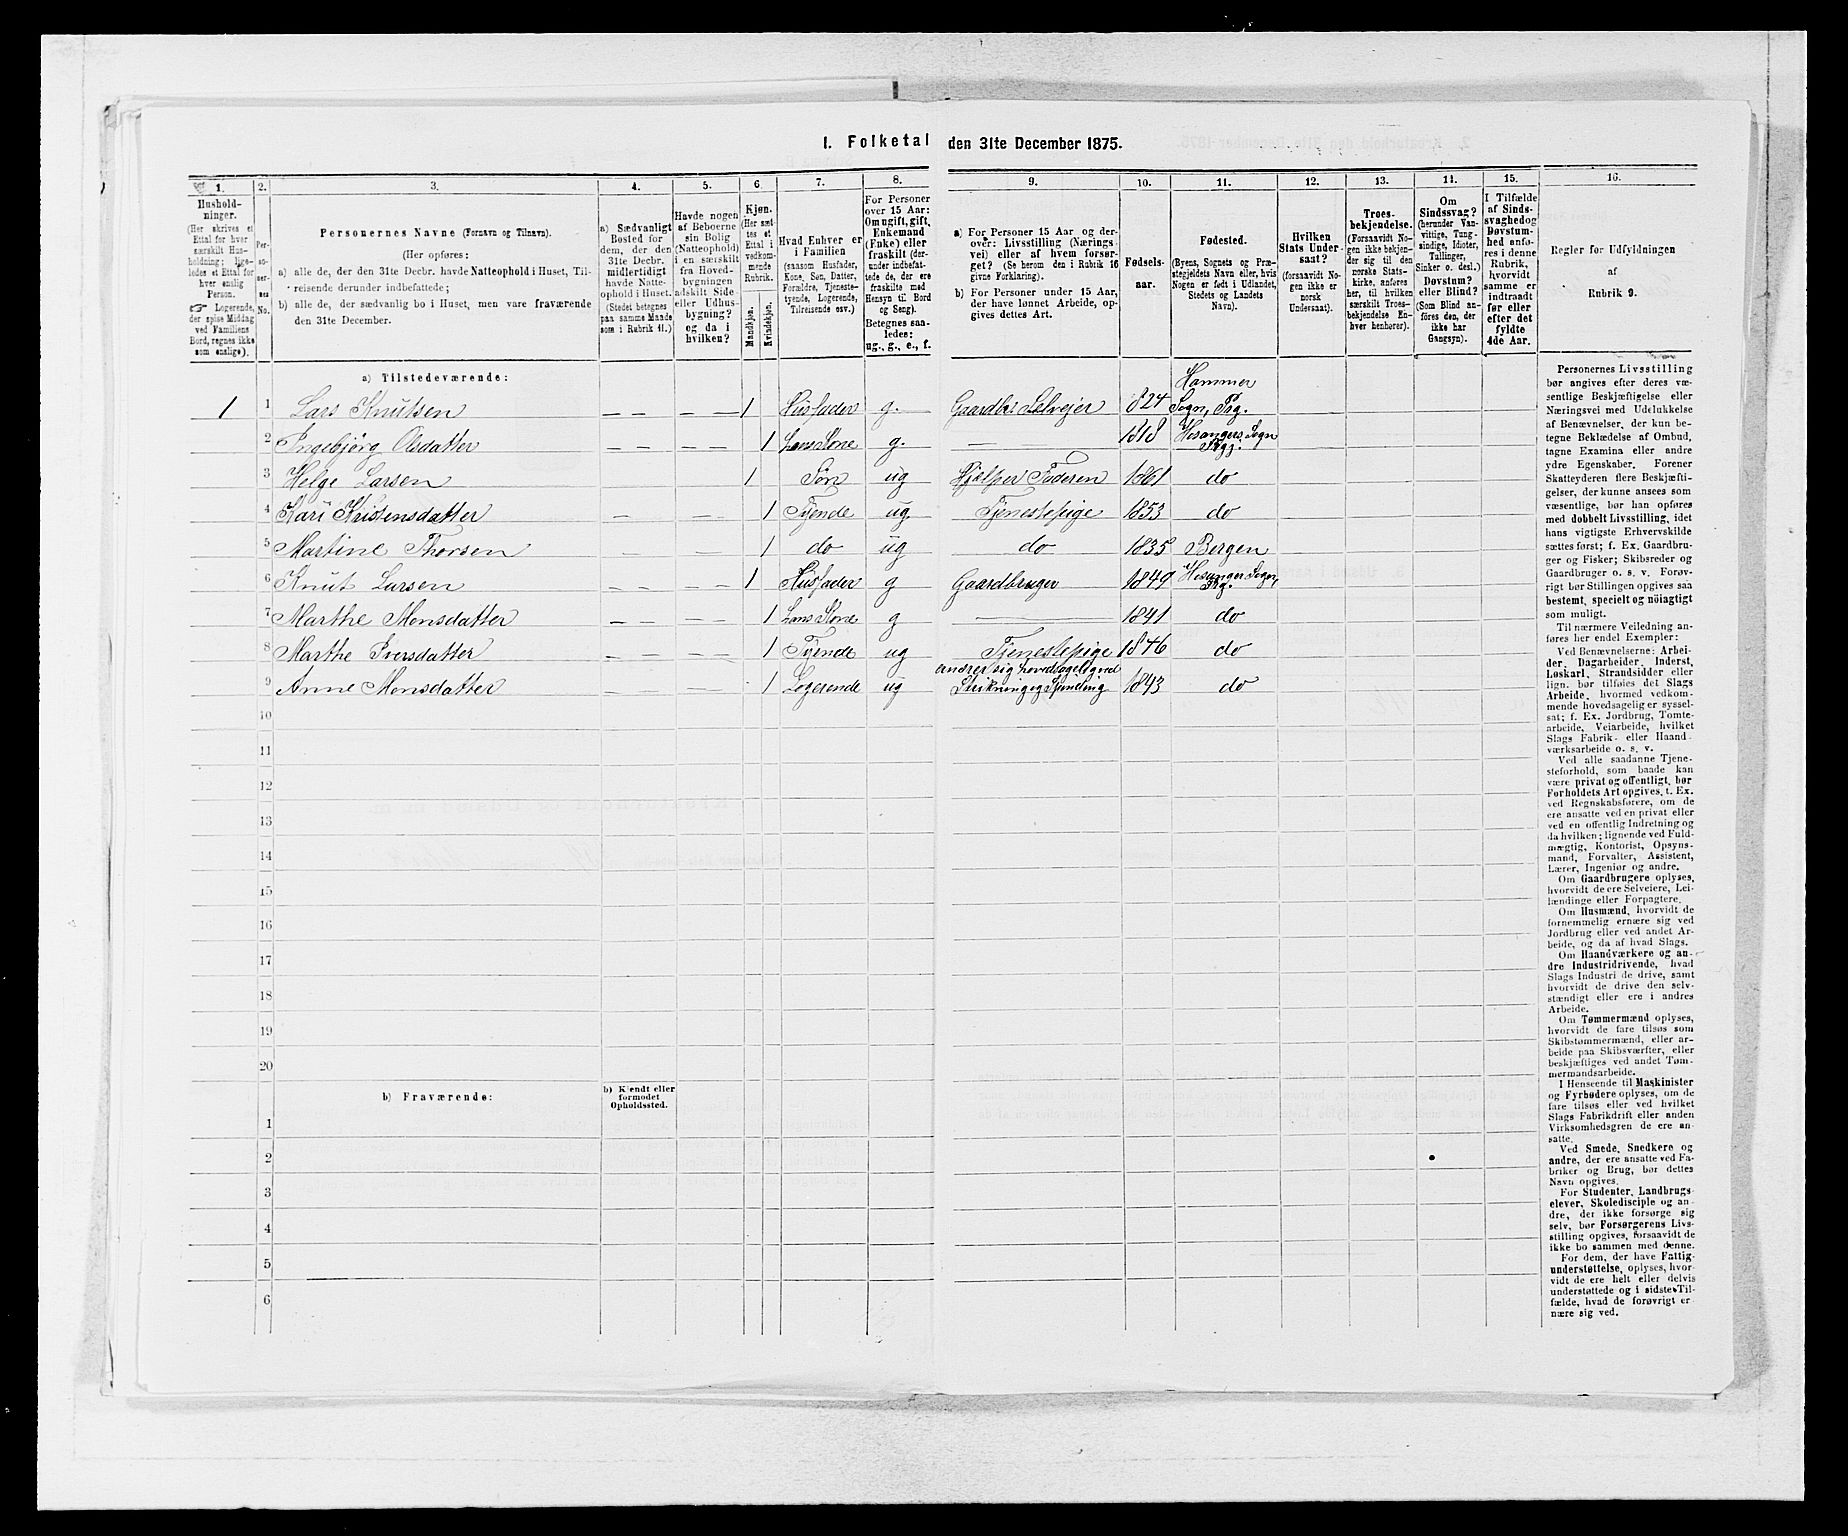 I. Folketal den 31te December 1875.
1. 2. 3. 4. 5. 6. 7. 8. 9. 10. 11. 12. 13. 14. 15. 16.
Hushold-
ninger.
(Her skrives et
Ettal for hver
særskilt Hus-
holdning; lige-
ledes et Ettal for
hver enslig
Person.
☞ Logerende,
der spise Middag
ved Familiens
Bord, regnes ikke
som enslige).
Per-
soner-
nes
No.
Personernes Navne (Fornavn og Tilnavn).
(Her opføres:
a) alle de, der den 31te Decbr. havde Natteophold i Huset, Til-
reisende derunder indbefattede;
b) alle de, der sædvanlig bo i Huset, men vare fraværende
den 31te December.
a) Sædvanligt
Bosted for
dem, der den
31te Decbr.
midlertidigt
havde Natte-
ophold i Huset.
(Stedet betegnes
paa samme Maade
som i Rubrik 11.)
Havde nogen
af Beboerne
sin Bolig
(Natteophold)
i en særskilt
fra Hoved-
bygningen
adskilt Side-
eller Udhus-
bygning?
og da i
hvilken?
Kjøn.
(Her sæt-
tes et
Ettal i
vedkom-
mende
Rubrik.
Mandkjøn.
Kvindekjøn.
Hvad Enhver er
i Familien
(saasom Husfader,
Kone, Søn, Datter,
Forældre, Tjeneste-
tyende, Logerende,
Tilreisende osv.)
For Personer
over 15 Aar:
Om ugift, gift,
Enkemand
(Enke) eller
fraskilt (der-
under indbefat-
tede de, der ere
fraskilte med
Hensyn til Bord
og Seng).
Betegnes saa-
ledes:
ug., g., e., f.
a) For Personer 15 Aar og der-
over: Livsstilling (Nærings-
vei) eller af hvem forsør-
get? (Se herom den i Rubrik 16
givne Forklaring).
b) For Personer under 15 Aar,
der have lønnet Arbeide, op-
gives dettes Art.
Fødsels-
aar.
Fødested.
(Byens, Sognets og Præ-
stegjeldets Navn eller, hvis
Nogen er født i Udlandet,
Stedets og Landets
Navn).
Hvilken
Stats Under-
saat?
(forsaavidt No-
gen ikke er
norsk
Undersaat).
Troes-
bekjendelse.
(Forsaavidt No-
gen ikke bekjen-
der sig til den
norske Stats-
kirke, anføres
her, til hvilken
særskilt Troes-
bekjendelse En-
hver henhører).
Om
Sindssvag?
(herunder Van-
vittige, Tung-
sindige, Idioter,
Tullinger,
Sinker o. desl.)
Døvstum?
eller Blind?
(Som Blind an-
føres den, der
ikke har
Gangsyn).
I Tilfælde
af Sinds-
svaghed og
Døvstum-
hed anfø-
res i denne
Rubrik,
hvorvidt
samme er
indtraadt
før eller
efter det
fyldte
4de Aar.
Regler for Udfyldningen
af
Rubrik 9.
a) Tilstedeværende:
1 1 Lars Knutsen — — — — 1 Husfader g. Gaardbr Selveier 1824 Hammer Sogn, Prg.
2 Ingebjørg Olsdatter — — — — 1 hans Kone g. — 1818 Hosangers Sogn Prgj.
3 Helge Larsen 1 Søn ug Hjælper Faderen 1861 do
4 Kari Kristensdatter — — 1 Tyende ug. Tjenestepige 1853 do
5 Martine Thorsen — — 1 do ug do 1835 Bergen
6 Knut Larsen — — — — 1 Husfader g Gaardbruger 1849 Hosanger Sogn, Prg.
7 Marthe Monsdatter — — — — 1 hans Kone g — 1841 do
8 Marthe Iversdatter — — — — 1 Tyende ug Tjenestepige 1846 do
9 Anne Monsdatter — — 1 Logerende ug ernærer sig hovedsagelig ved Strikning og Spinding 1843 do
10
11
12
13
14
15
16
17
18
19
20
b) Fraværende:
b) Kjendt eller
formodet
Opholdssted.
1
2
3
4
5
6
Personernes Livsstilling
bør angives efter deres væ-
sentlige Beskjæftigelse eller
Næringsvei med Udelukkelse
af Benævnelser, der kun be-
tegne Beklædelse af Ombud,
tagne Examina eller andre
ydre Egenskaber. Forener
Skatteyderen flere Beskjæfti-
gelser, der kunne ansees som
væsentlige, bør han opføres
med dobbelt Livsstilling, idet
hans vigtigste Erhvervskilde
sættes først; f. Ex. Gaardbru-
ger og Fisker; Skibsreder og
Gaardbruger o. s. v. Forøv-
rigt bør Stillingen opgives saa
bestemt, specielt og nöiagtigt
som muligt.
Til nærmere Veiledning an-
føres her endel Exempler:
Ved Benævnelserne: Arbei-
der, Dagarbeider, Inderst,
Løskarl, Strandsidder eller
lign. bør tilføies det Slags
Arbeide, hvormed vedkom-
mende hovedsagelig er syssel-
sat; f. Ex. Jordbrug, Tomte-
arbeide, Veiarbeide, hvilket
Slags Fabrik- eller Haand-
værksarbeide o. s. v.
Ved alle saadanne Tjene-
steforhold, som baade kan
være privat og offentligt, bør
Forholdets Art opgives, t. Ex.
ved Regnskabsførere, om de
ere ansatte ved en privat eller
ved en offentlig Indretning og
da hvilken; lignende ved Fuld-
mægtig, Kontorist, Opsyns-
mand, Forvalter, Assistent,
Lærer, Ingeniør og andre.
Om Gaardbrugere oplyses,
hvorvidt de ere Selveiere, Lei-
lændinge eller Forpagtere.
Om Husmænd, hvorvidt de
fornemmelig ernære sig ved
Jordbrug eller ved andet Ar-
beide, og da af hvad Slags.
Om Haandværkere og an-
dre Industridrivende, hvad
Slags Industri de drive, samt
hvorvidt de drive den selv-
stændigt eller ere i andres
Arbeide.
Om Tømmermænd oplyses,
hvorvidt de fare tilsøs som
Skibstømmermænd, eller ar-
beide paa Skibsværfter, eller
beskjæftiges ved andet Tøm-
mermandsarbeide.
I Henseende til Maskinister
og Fyrbødere oplyses, om de
fare tilsøs eller ved hvilket
Slags Fabrikdrift eller anden
Virksomhedsgren de ere an-
satte.
Ved Smede, Snedkere og
andre, der ere ansatte ved Fa-
briker og Brug, bør dettes
Navn opgives.
For Studenter, Landbrugs-
elever, Skoledisciple og an-
dre, der ikke forsørge sig
selv, bør Forsørgerens Livs-
stilling opgives, forsaavidt de
ikke bo sammen med denne.
For dem, der have Fattig-
understøttelse, oplyses, hvor-
vidt de ere helt eller delvis
understøttede og i sidste Til-
fælde, hvad de forøvrigt er-
nære sig ved.